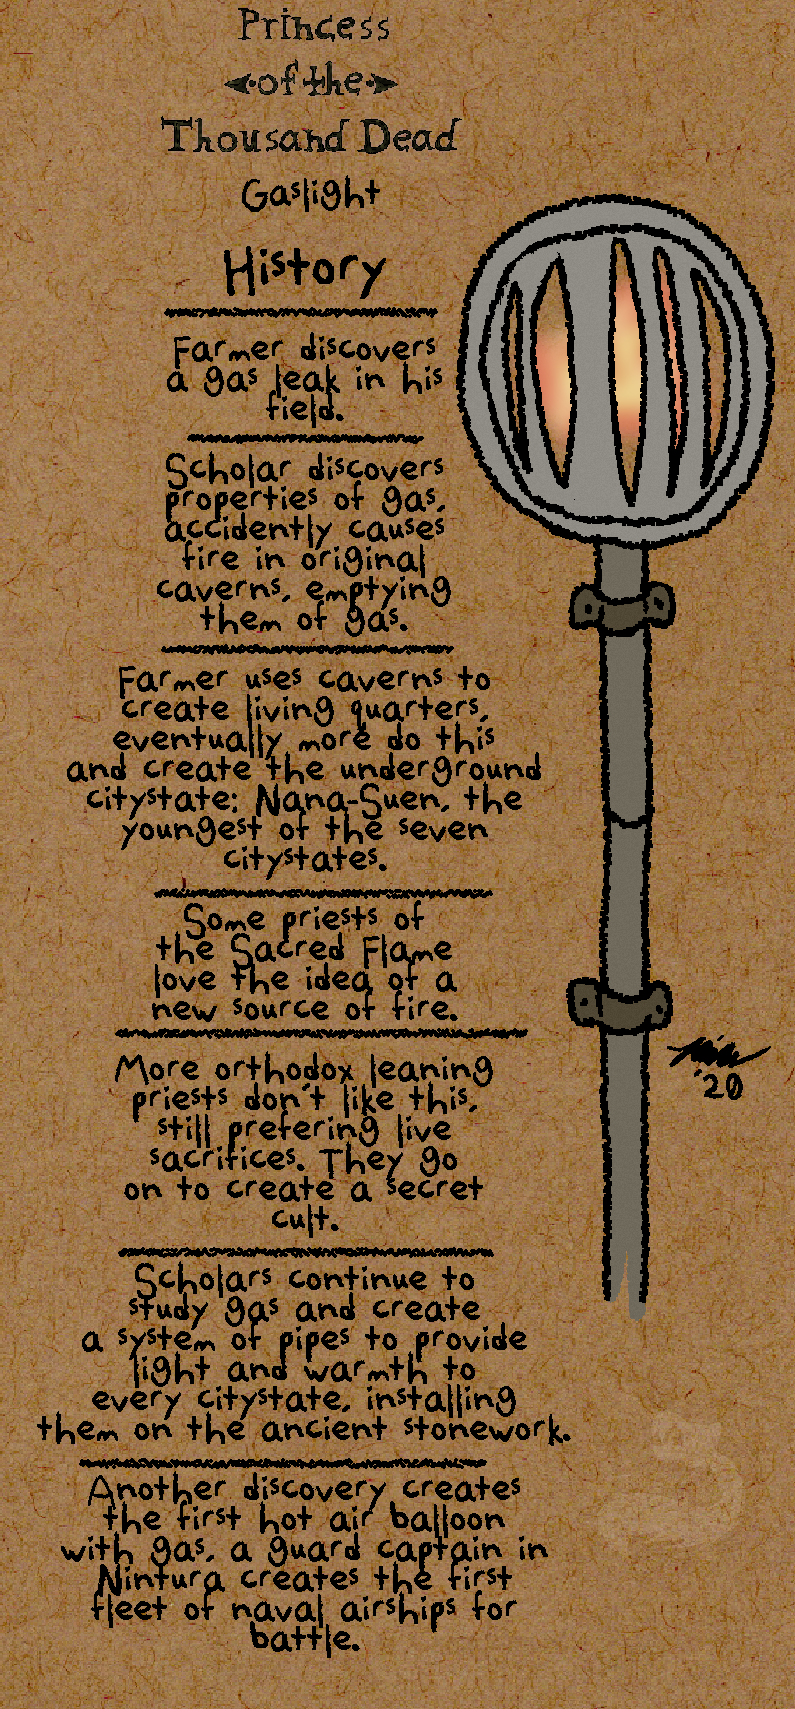 Princess
of the
Thousand Dead
Gaslight
History
Farmer discovers
a gas leak in his
field.
Scholar discovers
properties of gas,
accidently causes
fire in original
caverns, emptying
them of gas.
Farmer uses caverns to
create living quarters,
eventually more do this
and create the underground
citystate; Nana-Suen, the
youngest of the seven
citystates.
Some priests of
the Sacred Flame
love the idea of a
new source of fire.
More orthodox leaning
priests don't like this,
still prefering live
sacrifices. They go
on to create a secret
cult.
Scholars continue to
study gas and create
a system of pipes to provide
light and warmth to
every citystate, installing
them on the ancient stonework.
Another discovery creates
the first hot air balloon
with gas, a guard captain in
Nintura creates the first
fleet of naval airships for
battle.
'20